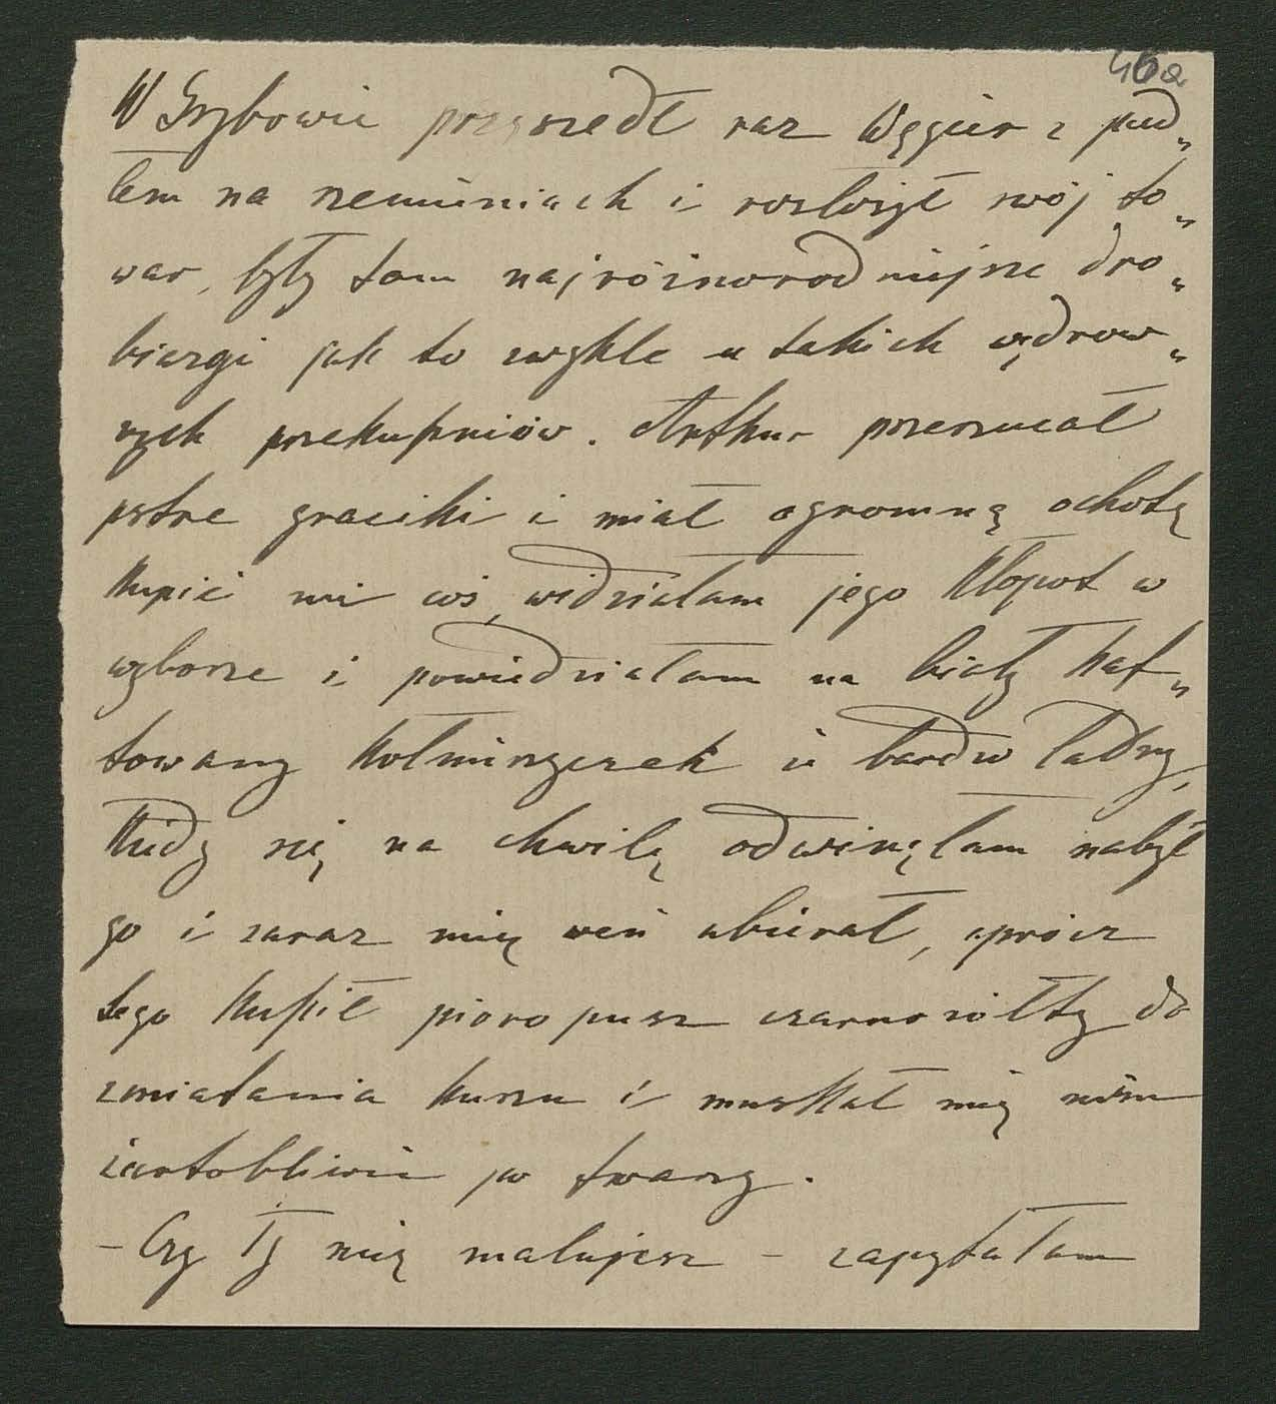 46a
W Grybowie przyszedł raz Węgier z pud„
łem na rzemieniach i rozłożył swój to„
war, były tam najróżnorodniejsze dro„
biazgi jak to zwykle u takich wędrow„
nych przekupniów. Arthur przerzucał
pstre graciki i miał ogromną ochotę
kupić mi coś, widziałam jego kłopot w
wyborze i powiedziałam na biały haf„
towany kołnierzyczek że bardzo ładny,
Kiedy się na chwilę odwinęłam nabył
go i zaraz mię weń ubierał, oprócz
tego kupił pioropusz czarnożółty do
zmiatania kurzu i muskał mię nim
żartobliwie po twarzy.
– Czy Ty mię malujesz – zapytałam